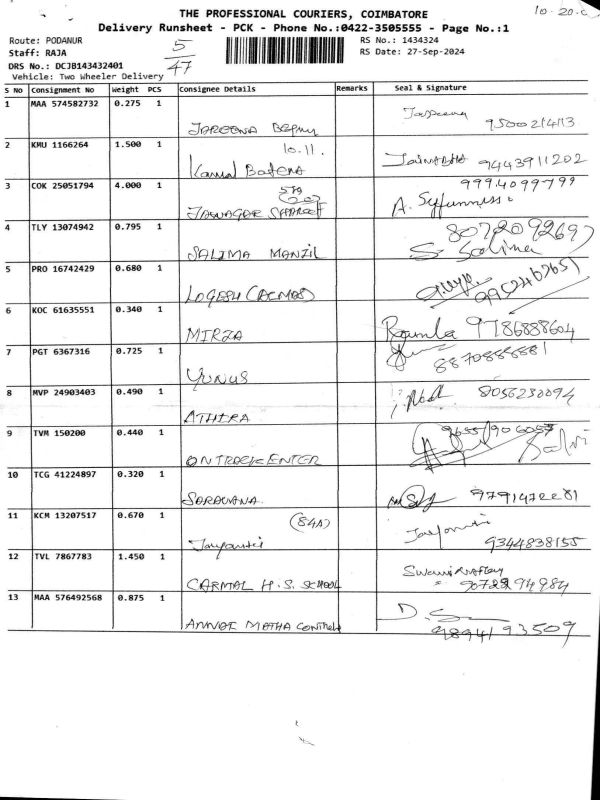 THE PROFESSIONAL COURIERS, COIMBATORE
10-20
Delivery Runsheet - PCK - Phone No.:0422-3505555 - Page No.:1
Route: PODANUR 5/47 RS No.: 1434324
Staff: RAJA RS Date: 27-Sep-2024
DRS No.: DCJB143432401
Vehicle: Two Wheeler Delivery
S No Consignment No Weight PCS Consignee Details Remarks Seal & Signature
1 MAA 574582732 0.275 1 JAREENA BEGAM
2 KMU 1166264 1.500 1 10.11. Kamal Batena 9443911202
3 COK 25051794 4.000 1 9994099799
4 TLY 13074942 0.795 1 SALIMA MANZIL 8072092697 S. Salima
5 PRO 16742429 0.680 1 LOGESH (ACMOS) 9952467651
6 KOC 61635551 0.340 1 MIRZA Ramla 9786888604
7 PGT 6367316 0.725 1 YUNUS 8870888881
8 MVP 24903403 0.490 1 ATHIRA 8056230094
9 TVM 150200 0.440 1 ONTRACK ENTER 9655190605 Selvi
10 TCG 41224897 0.320 1 SARAVANA 9791472281
11 KCM 13207517 0.670 1 (84A) Jayanthi Jayanthi 9344838155
12 TVL 7867783 1.450 1 CARMAL H.S. SCHOOL 9072294984
13 MAA 576492568 0.875 1 ANNAI MATHA 9894193509